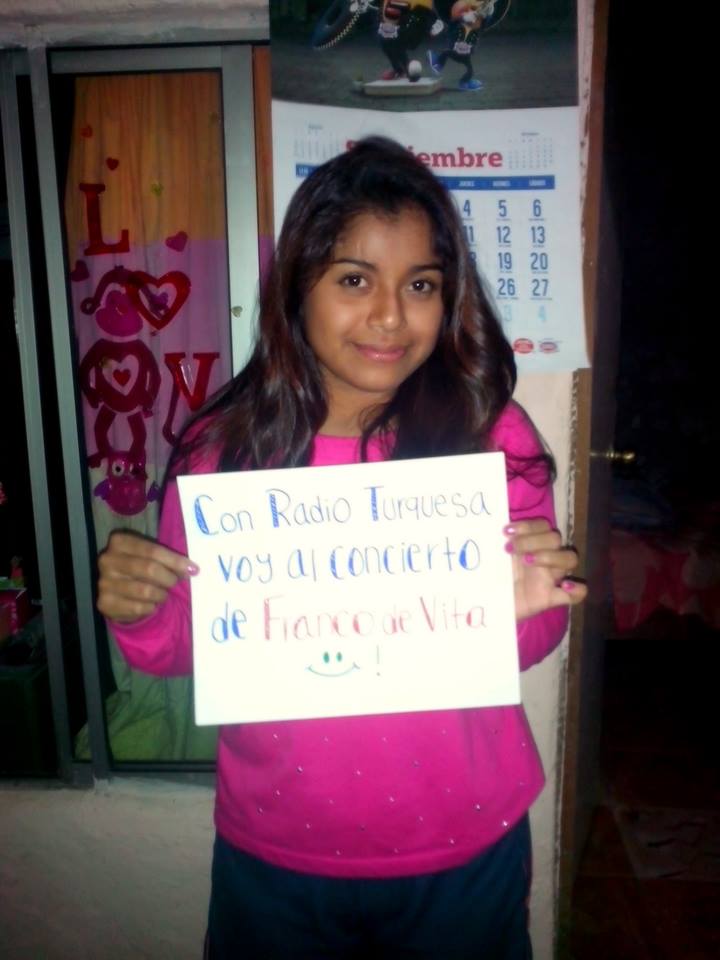 Septiembre
JUEVES VIERNES SÁBADO
4 5 6
11 12 13
19 20
26 27
3 4
L
V
Con Radio Turquesa
voy al concierto
de Franco de Vita
!